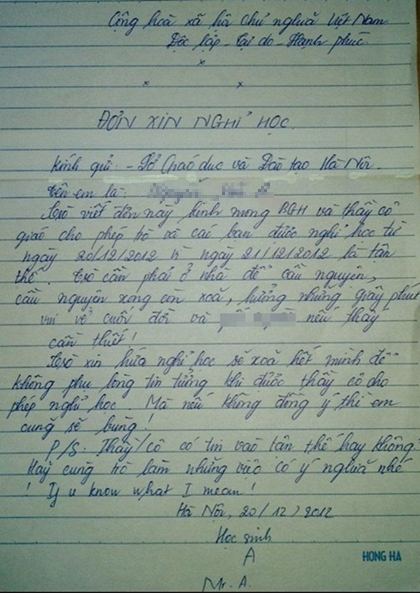 Cộng hoà xã hội chủ nghĩa Việt Nam
Độc lập - Tự do - Hạnh phúc
ĐƠN XIN NGHỈ HỌC
Kính gửi: - Sở Giáo dục và Đào tạo Hà Nội.
Tên em là
Trò viết đơn này kính mong BGH và thầy cô
giáo cho phép trò và các bạn được nghỉ học từ
ngày 20/12/2012 vì ngày 21/12/2012 là tận
thế. Trò cần phải ở nhà để cầu nguyện,
cầu nguyện xong còn xoã, hưởng những giây phút
vui vẻ cuối đời và nếu thấy
cần thiết!
Trò xin hứa nghỉ học sẽ xoã hết mình để
không phụ lòng tin tưởng khi được thầy cô cho
phép nghỉ học. Mà nếu không đồng ý thì em
cũng sẽ bùng!
P/S: Thầy/cô có tin vào tận thế hay không
Hãy cùng trò làm những việc có ý nghĩa nhé
! If u know what I mean!
Hà Nội, 20/12/2012
Học sinh
A
Mr. A.
HONG HA